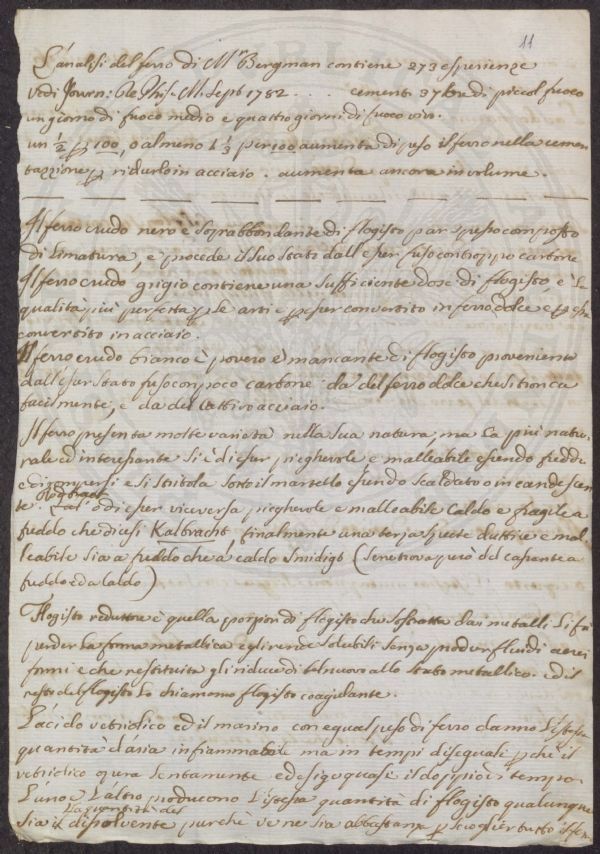 11
L'analisi del ferro di Mr Bergman contiene 273 esperienze
vedi Journ: de Phis. M. Septb 1782 .... cementi 37 lbre di piccol fuoco
un giorno di fuoco medio e quattro giorni di fuoco vivo.
un ½ p 100, o almeno 1 ⅓ per 100 aumenta di peso il ferro nella cemen
tazzione p ridurlo in acciaio. aumenta ancora in volume.
Il ferro crudo nero è soprabbondante di flogisto par spesso composto
di Limatura, e procede il suo stato dall'esser fuso con troppo carbone
Il ferro crudo grigio contiene una sufficiente dose di flogisto è la
qualità più perfetta p le arti e p esser convertito in ferro dolce e p esser
convertito in acciaio.
Il ferro crudo bianco è povero e mancante di flogisto proveniente
dall'esser stato fuso con poco carbone dà del ferro dolce che si tronca
facilmente, e da del cattivo acciaio.
Il ferro presenta molte varietà nella sua natura, ma la più natu-
rale ed interessante si è di esser pieghevole e malleabile essendo freddo
e di rompersi e si stritola sotto il martello essendo scaldato o incandescen
te. L'altro di esser viceversa pieghevole e malleabile caldo e fragile a
freddo che dicesi Kalbracht, finalmente una terza specie duttile e mal-
leabile sia a freddo che a caldo Smidigt (se ne trova però del cassante a
freddo ed a caldo)
Flogisto reduttore è quella porzion di flogisto che sottratta dai metalli li fa
perder la forma metallica e gli rende solubili senza produr fluidi aeri
formi e che restituita gli riduce di bel nuovo allo stato metallico. ed il
resto del flogisto lo chiamano flogisto coagulante.
L'acido vetriolico ed il marino con egual peso di ferro danno l'istessa
quantità d'aria infiammabile ma in tempi diseguali p chè il
vetriolico opera lentamente ed esige quasi il doppio di tempo.
L'uno e l'altro producono l'istessa quantità di flogisto qualunque
la quantità del
sia il dissolvente purchè ve ne sia abbastanza p scioglier tutto il ferro